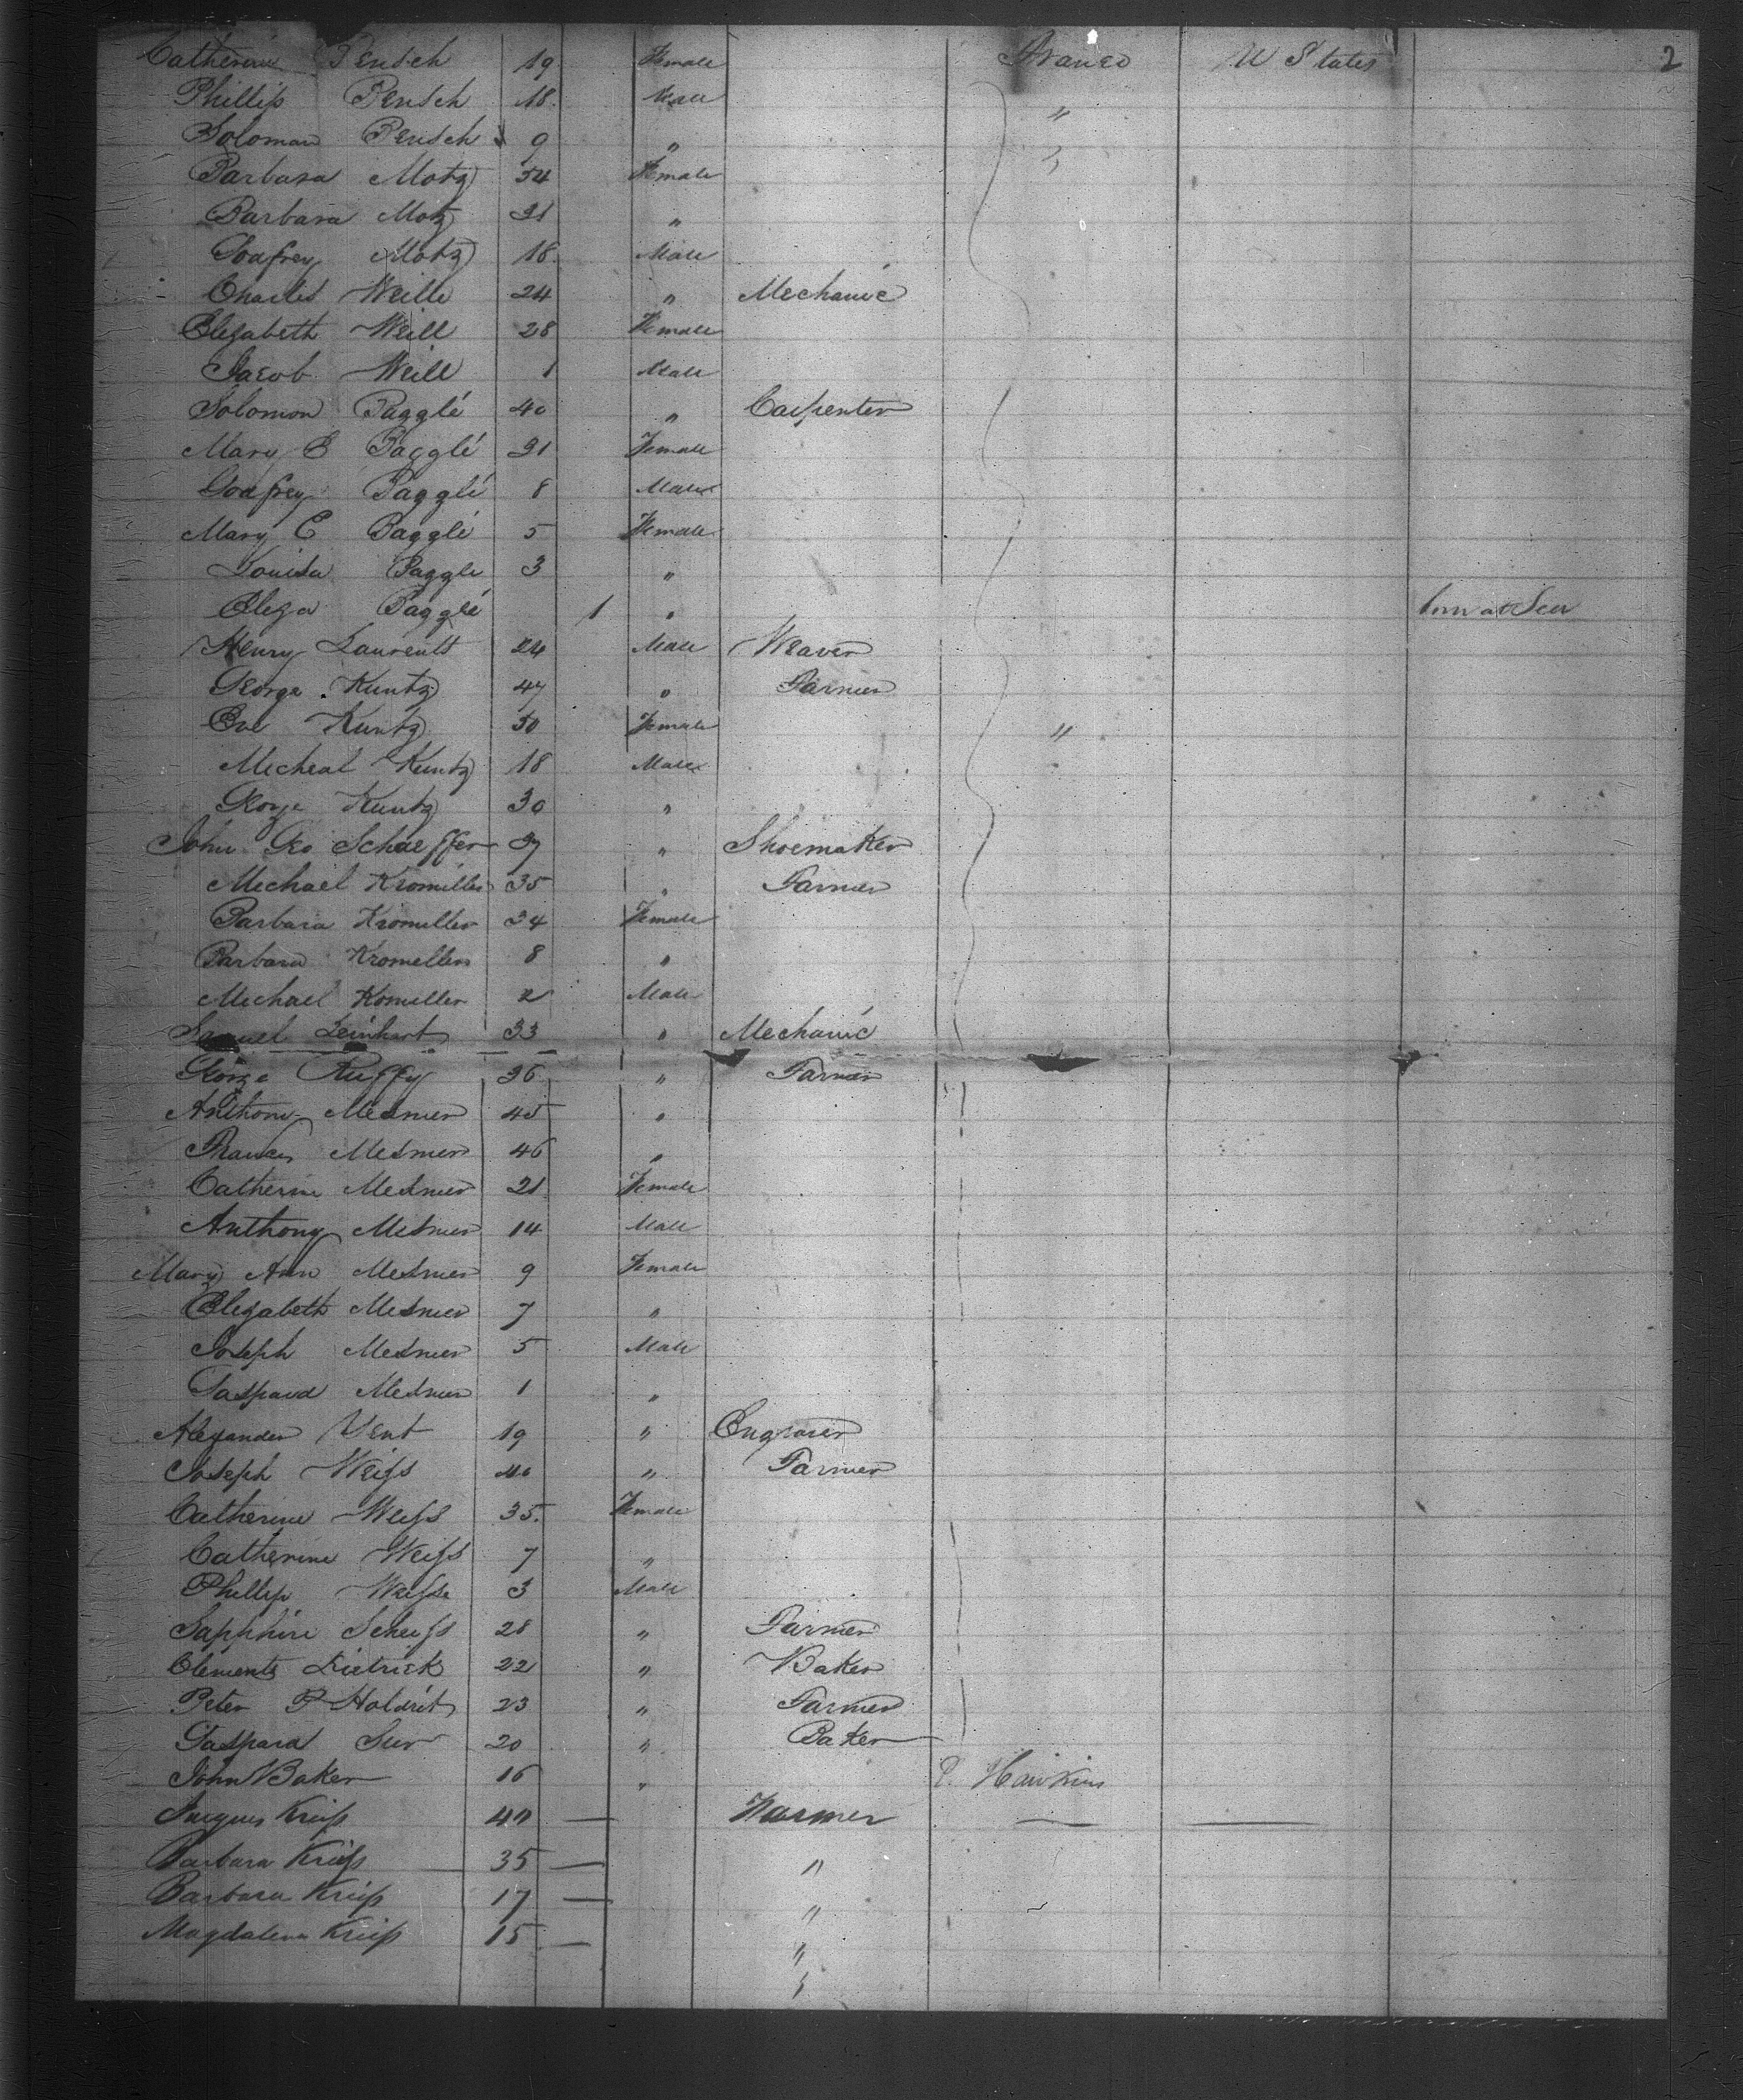 Catherine Pensch 19 Female France U States 2
Phillip Pensch 18. Male "
Soloman Pensch 9 " "
Barbara Motz 54 Female
Barbara Motz 21 "
Godfrey Motz 18. Male
Charles Weille 24 " Mechanic
Elizabeth Weill 28 Female
Jacob Weill 1 Male
Solomon Pagglé 40 " Carpenter
Mary E Pagglé 31 Female
Godfrey Pagglé 8 Male
Mary C Pagglé 5 Female
Louisa Paggle 3 "
Eliza Pagglé 1 " born at Sea
Henry Laurentt 24 Male Weaver
George Kuntz 47 " Farmer
Eve Kuntz 50 Female "
Micheal Kuntz 18 Male
George Kuntz 30 "
John Geo Schaeffer 27 " Shoemaker
Michael Kromiller 35 " Farmer
Barbara Kromiller 34 Female
Barbara Kromeller 8 "
Michael Komiller 2 Male
Samuel Leinhart 33 " Mechanic
George Ruffy 36 " Farmer
Anthony Mesmer 45 "
Frances Mesmer 46 "
Catherine Mesmer 21 Female
Anthony Mesmer 14 Male
Mary Ann Mesmer 9 Female
Elizabeth Mesmer 7 "
Joseph Mesmer 5 Male
Gaspard Mesmer 1 "
Alexander Vent 19 " Engraver
Joseph Weifs 40 " Farmer
Catherine Weifs 35. Female
Catherine Weifs 7 "
Phillip Weifse 3 Male
Sapphire Scheifs 28 " Farmer
Clements Dietrick 22 " Baker
Peter P Holdrit 23 " Farmer
Gaspard Sur 20 " Baker
John Baker 16 " P. Hawkins
Jacques Kriefs 40 — Farmer — —
Barbara Kriefs 35 — "
Barbara Kriefs 17 — "
Magdalena Kriefs 15 — "
"